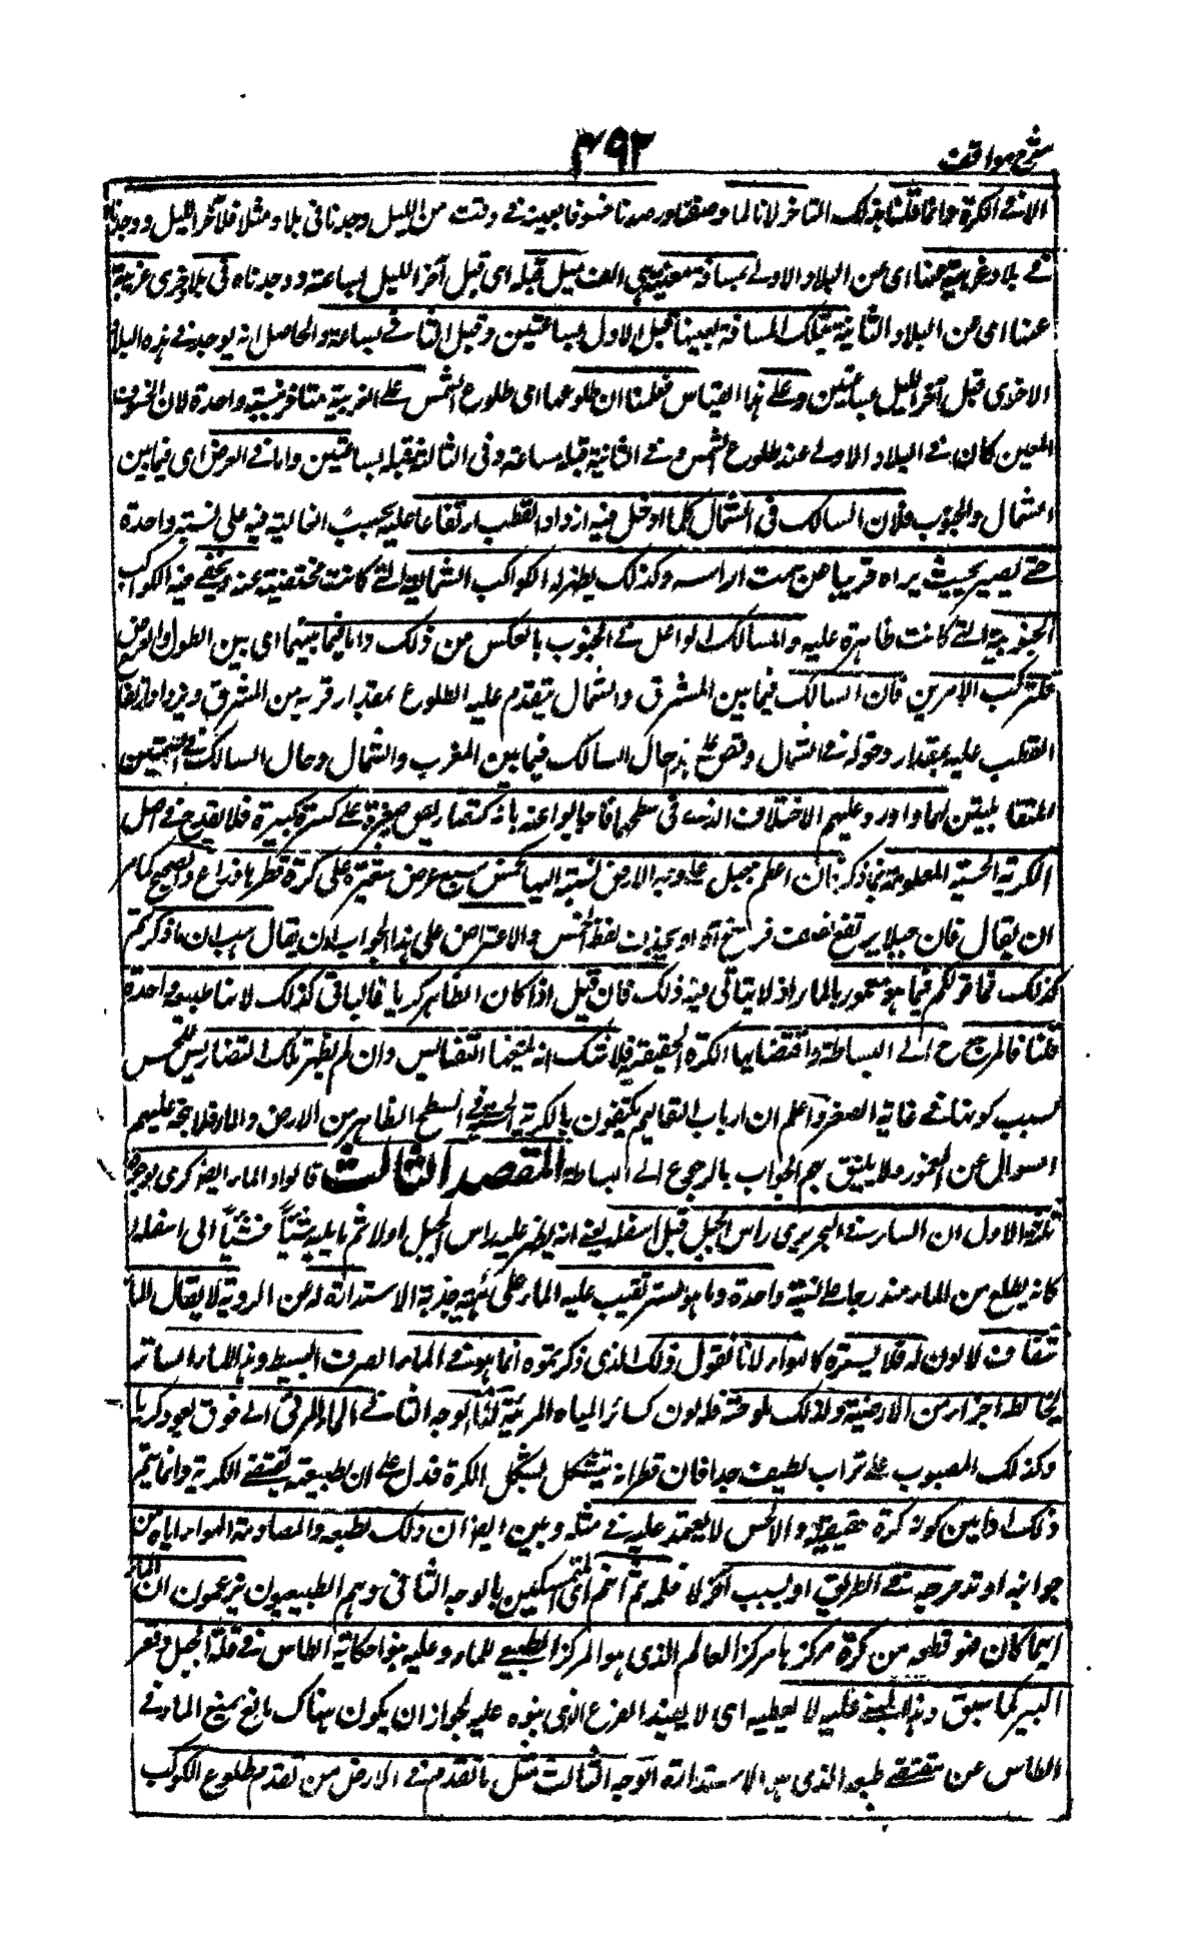 شرح مواقف
٤٩٢
الا فى الكرة وانما قلنا بذلك التاخر لانا لما وصفنا ورصدنا خسوفا بعينه فى وقت من الليل وجدناه فى بلاد مثلا آخر الليل ووجدناه
فى بلاد غربية عنها اى عن البلاد الاولى بمسافة معينة هى الف ميل قبله اى قبل آخر الليل بساعة ووجدناه فى بلاد اخرى غربية
عنها اى عن البلاد الثانية بتلك المسافة بعينها قبل الاول بساعتين وقبل الثانى بساعة والحاصل انه يوجد فى هذه البلاد
الاخرى قبل آخر الليل بساعتين وعلى هذا القياس فعلمنا ان طلوعها اى طلوع الشمس على الغربية متاخر بنسبة واحدة لان الخسوف
المعين كان فى البلاد الاولى عند طلوع الشمس وفى الثانية قبله بساعة وفى الثالثة قبله بساعتين واما فى العرض اى فيما بين
الشمال والجنوب فلان السالك فى الشمال كلما اوغل فيه ازداد القطب ارتفاعا عليه بحسب ايغاله فيه على نسبة واحدة
حتى يصير بحيث يراه قريبا من سمت راسه وكذلك يظهر له الكواكب الشمالية التى كانت مختفية عنه ويخفى عنه الكواكب
الجنوبية التى كانت ظاهرة عليه والسالك الواغل فى الجنوب بالعكس من ذلك واما فيما بينهما اى بين الطول والعرض
فلتركب الامرين فان السالك فيما بين المشرق والشمال يتقدم عليه الطلوع بمقدار قربه من المشرق ويزداد ارتفاع
القطب عليه بمقدار وغوله فى الشمال وقس على هذا حال السالك فيما بين المغرب والشمال وحال السالك فى السمتين
المتقابلين لهما واورد عليهم الاختلاف الذى فى سطحها فاجابوا عنه بانه كتضاريس صغيرة على كرة كبيرة فلا يقدح فى اصل
الكرية الحسية المعلومة بما ذكر فان اعظم جبل على وجه الارض نسبته اليها كخمس سبع عرض شعيرة على كرة قطرها ذراع والصحيح كما مر
ان يقال فان جبلا يرتفع نصف فرسخ آه او يحذف لفظ الخمس والاعتراض على هذا الجواب ان يقال هب ان ما ذكرتم
كذلك فما قولكم فيما هو مغمور بالماء اذ لا يتاتى فيه ذلك فان قيل اذا كان الظاهر كريا فالباقى كذلك لانها طبيعة واحدة
قلنا فالمرجع ح الى البساطة واقتضائها الكرة الحقيقية ولا شك انه يمنعها التضاريس وان لم يظهر تلك التضاريس للحس
بسبب كونها فى غاية الصغر واعلم ان ارباب التعاليم يكتفون بالكرية الحسية فى السطح الظاهر من الارض والماء فلا يتجه عليهم
السوال عن المغمور ولا يليق بهم الجواب بالرجوع الى البساطة المقصد الثالث قالوا والماء ايضا كرى لوجوه
ثلثة الاول ان السائر فى البحر يرى راس الجبل قبل اسفله يعنى انه يظهر عليه راس الجبل اولا ثم ما يليه شيئا فشيئا الى اسفله
كانه يطلع من الماء متدرجا على نسبة واحدة وما هو لستر تقبيب عليه الماء على هيئة حدبة الاستدارة له عن الروية لا يقال الماء
شفاف لا لون له فلا يستره كالهواء لانا نقول ذلك الذى ذكرتموه انما هو فى الماء الصرف البسيط وهذا الماء الساتر
يخالطه اجزاء من الارضية ولذلك ملوحته فله لون كسائر المياه المرئية لنا الوجه الثانى الماء المرمى الى فوق يعود كريا
وكذلك المصبوب على تراب لطيف جدا فان قطراته يتشكل بشكل الكرة فدل على ان طبيعته يقتضى الكرية وانما يتم
ذلك اذا بين كونه كرة حقيقية والا الحس لا يعتمد عليه فى مثله وبين ايضا ان ذلك لطبعه لا لمصادمة الهواء اياه من
جوانبه او تدحرجه فى الطريق او لسبب آخر لا نعلمه ثم انهم اى المتمسكين بالوجه الثانى وهم الطبيعيون يزعمون ان الماء
اينما كان فهو قطعة من كرة مركزها مركز العالم الذى هو المركز الطبيعى للماء وعليه بنوا حكاية الطاس فى قلة الجبل وقعر
البير كما سبق وهذا المبنى عليه لا يعطيه اى لا يفيد الفرع الذى بنوه عليه لجواز ان يكون هناك مانع يمنع الماء فى
الطاس عن مقتضى طبعه الذى هو الاستدارة الوجه الثالث مثل ما تقدم فى الارض من تقدم طلوع الكوكب